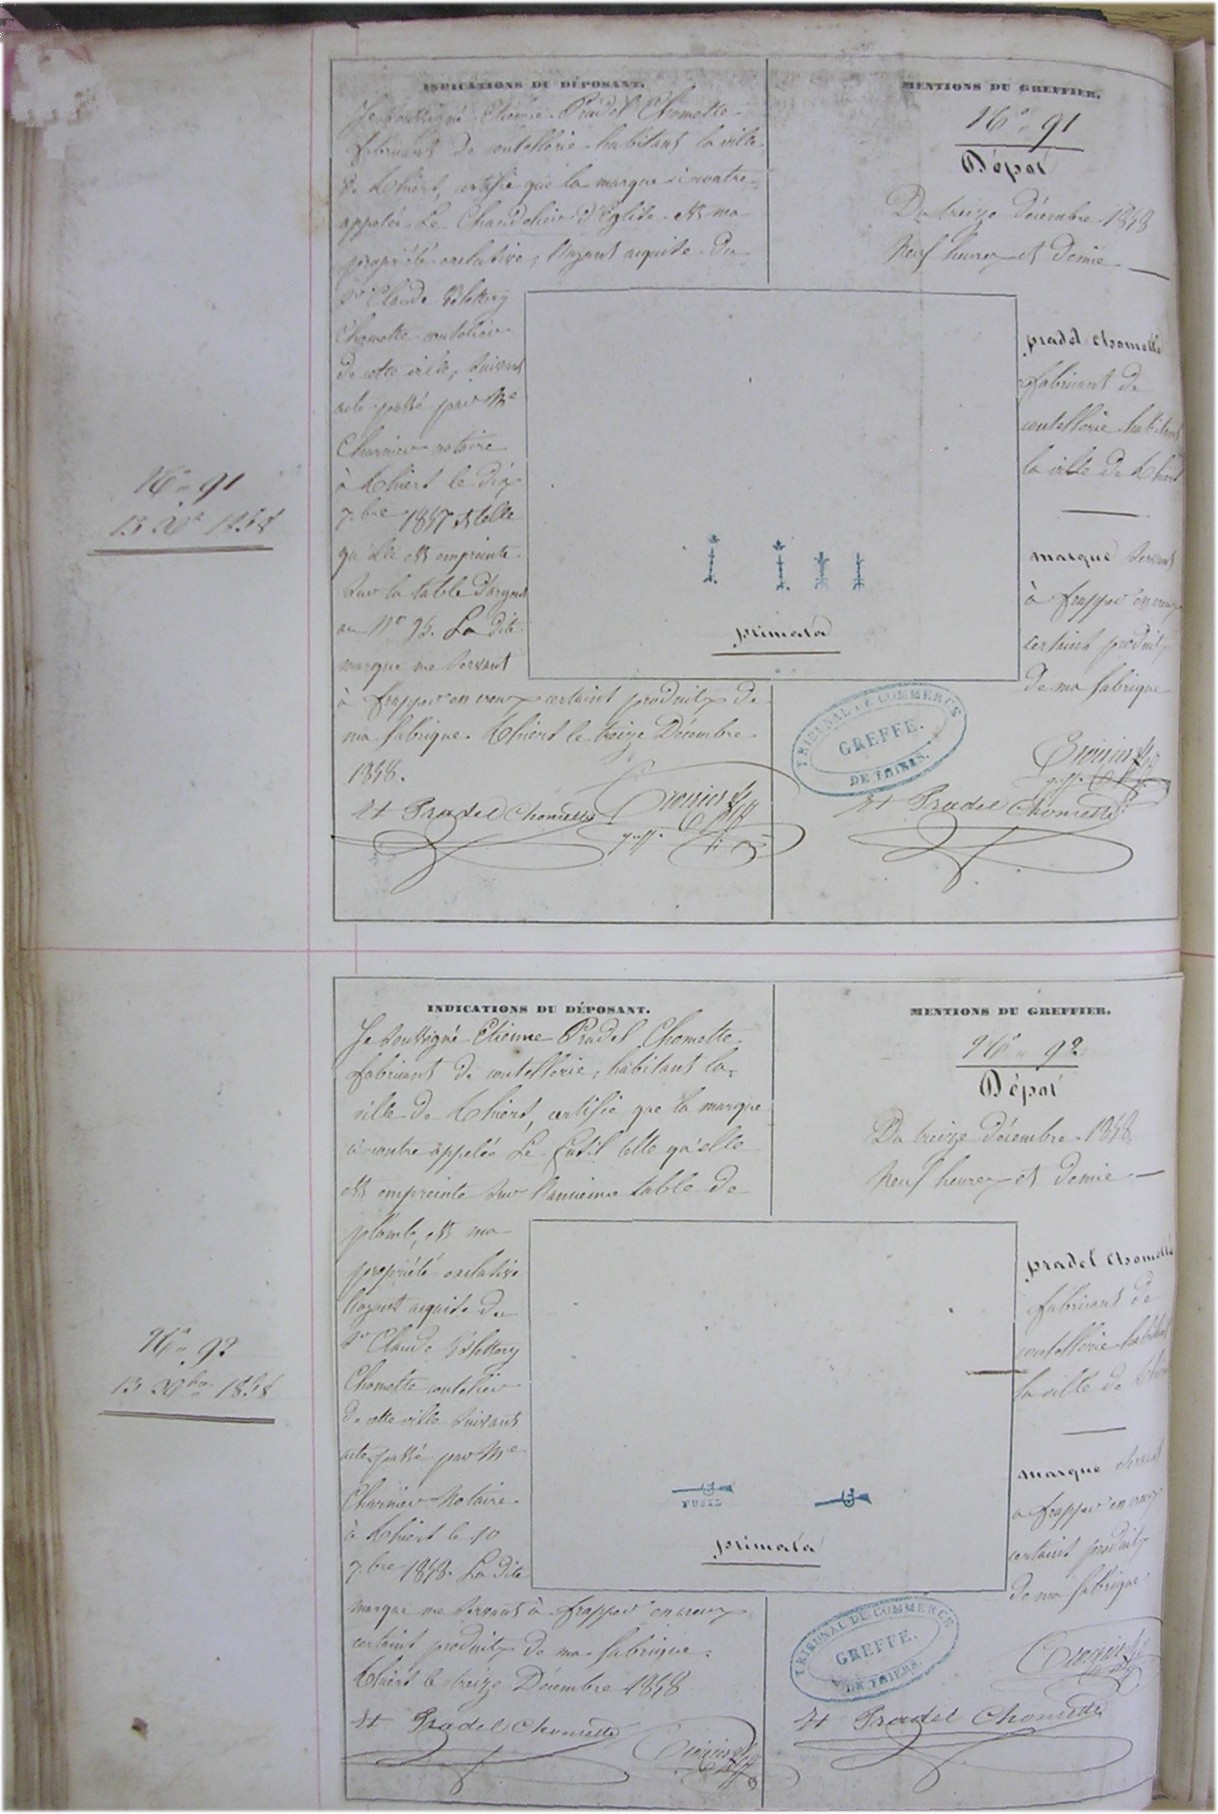 INDICATIONS DU DÉPOSANT.
Je soussigné Etienne Pradel Chomette
fabricant de coutellerie habitant la ville
de Thiers, certifie que la marque ci contre
appelée Le Chandelier d'Eglise est ma
propriété exclusive, l'ayant acquise du
Sr Claude
Chomette coutelier
de cette ville, suivant
acte passé par Me
Charnier notaire
à Thiers le dix
7bre 1857 et telle
qu'elle est empreinte
sur la table d'argent
au No La dite
marque me servant
à frapper en creux certains produits de
ma fabrique. Thiers le treize Décembre
1858.
Et Pradel Chomette
MENTIONS DU GREFFIER.
No 91
Dépot
Du treize décembre 1858
Neuf heures et demie
pradel chomette
fabricant de
coutellerie habitant
la ville de Thiers
marque servant
à frapper en creux
certains produits
de ma fabrique
primata
TRIBUNAL DE COMMERCE
GREFFE.
DE THIERS.
Et Pradel Chomette
No 91
13 Xbre 1858
INDICATIONS DU DÉPOSANT.
Je soussigné Etienne Pradel Chomette
fabricant de coutellerie, habitant la
ville de Thiers, certifie que la marque
ci contre appelée Le Fusil telle qu'elle
est empreinte sur l'ancienne table de
plomb, est ma
propriété exclusive
l'ayant acquise du
Sr Claude
Chomette coutelier
de cette ville suivant
acte passé par Me
Charnier Notaire
à Thiers le 10
7bre 1858. La dite
marque me servant à frapper en creux
certains produits de ma fabrique.
Thiers le treize Décembre 1858
Et Pradel Chomette
MENTIONS DU GREFFIER.
No 92
Dépot
Du treize décembre 1858
Neuf heures et demie
pradel chomette
fabricant de
coutellerie habitant
la ville de Thiers
marque servant
à frapper en creux
certains produits
de ma fabrique
FUSIL
primata
TRIBUNAL DE COMMERCE
GREFFE.
DE THIERS.
Et Pradel Chomette
No 92
13 Xbre 1858